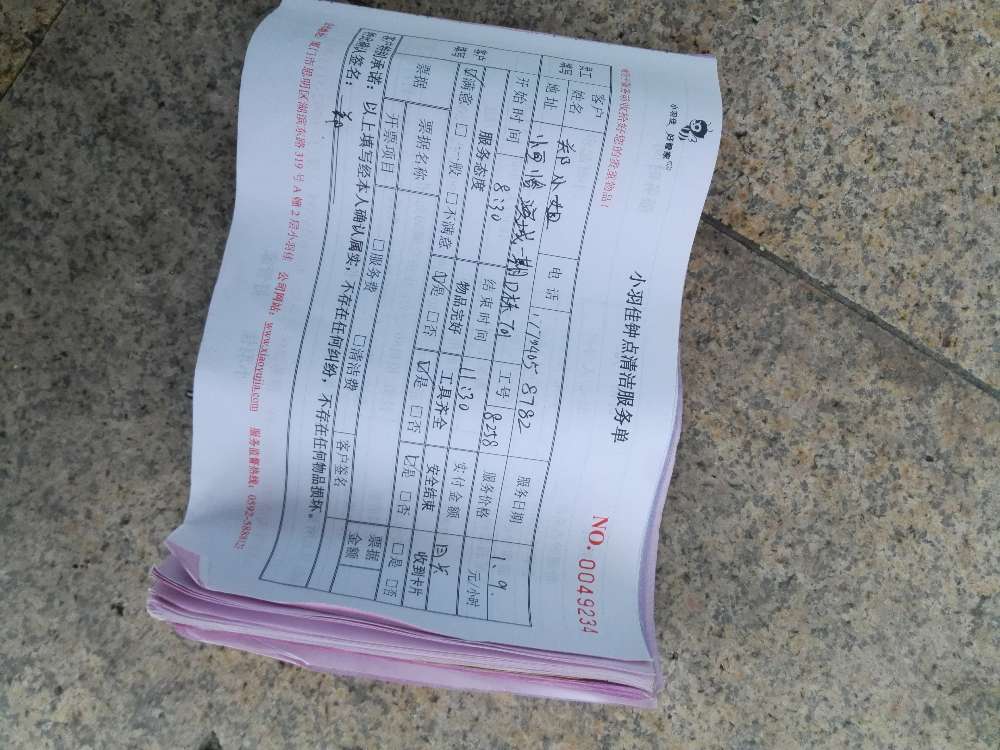 小羽佳 好管家
小羽佳钟点清洁服务单
NO. 0049234
客户 姓名 郑小姐 电话 服务日期 1、9.
员工编号 地址 工号 8258 服务价格 元/小时
开始时间 8:30 结束时间 11:30 实付金额 月卡
客户 服务态度 物品完好 工具齐全 安全结束 收到卡片
☑满意 □一般 □不满意 ☑是 □否 ☑是 □否 ☑是 □否 □是 □否
票据 票据名称 □服务费 □清洁费 客户签名 票据金额
开票项目
客户承诺：以上填写经本人确认属实，不存在任何纠纷，不存在任何物品损坏。
签名： 郑
厦门市思明区湖滨东路319号A栋2层小羽佳 公司网站：www.xiaoyujia.com 服务监督热线：